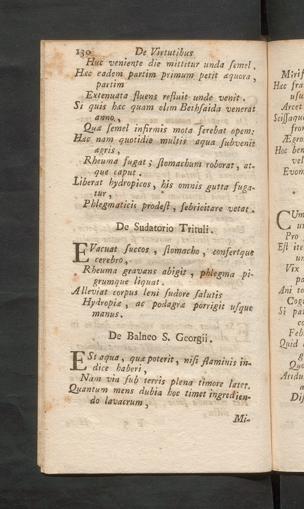 130 De Virtutibus
Huc veniente die mittitur unda semel.
Hæc eadem partim primum petit æquora,
partim
Extenuata fluens refluit unde venit.
Si quis hac quam olim Bethsaida venerat
anno,
Quæ semel infirmis mota ferebat opem:
Hæc nam quotidie multis aqua subvenit
ægris,
Rheuma fugat; stomachum roborat, at-
que caput.
Liberat hydropicos, his omnis gutta fuga-
tur,
Phlegmaticis prodest, febricitare vetat.
De Sudatorio Trituli.
EVacuat succos, stomacho, confertque
cerebro,
Rheuma gravans abigit, phlegma pi-
grumque liquat.
Alleviat corpus leni sudore salutis
Hydropiæ, ac podagræ porrigit usque
manus.
De Balneo S. Georgii.
ESt aqua, quæ poterit, nisi flaminis in-
dice haberi,
Nam via sub terris plena timore latet.
Quantum mens dubia hoc timet ingredien-
do lavacrum,
Mi-
Mirif
Hæc fra
Arcet
Scissaque
fron
Ægro
Hoc ben
vel
Evom
CUm
un
Pro
Est ite
un
Vix
pa
Ani to
Coga
Si pat
co
Febr
Quid